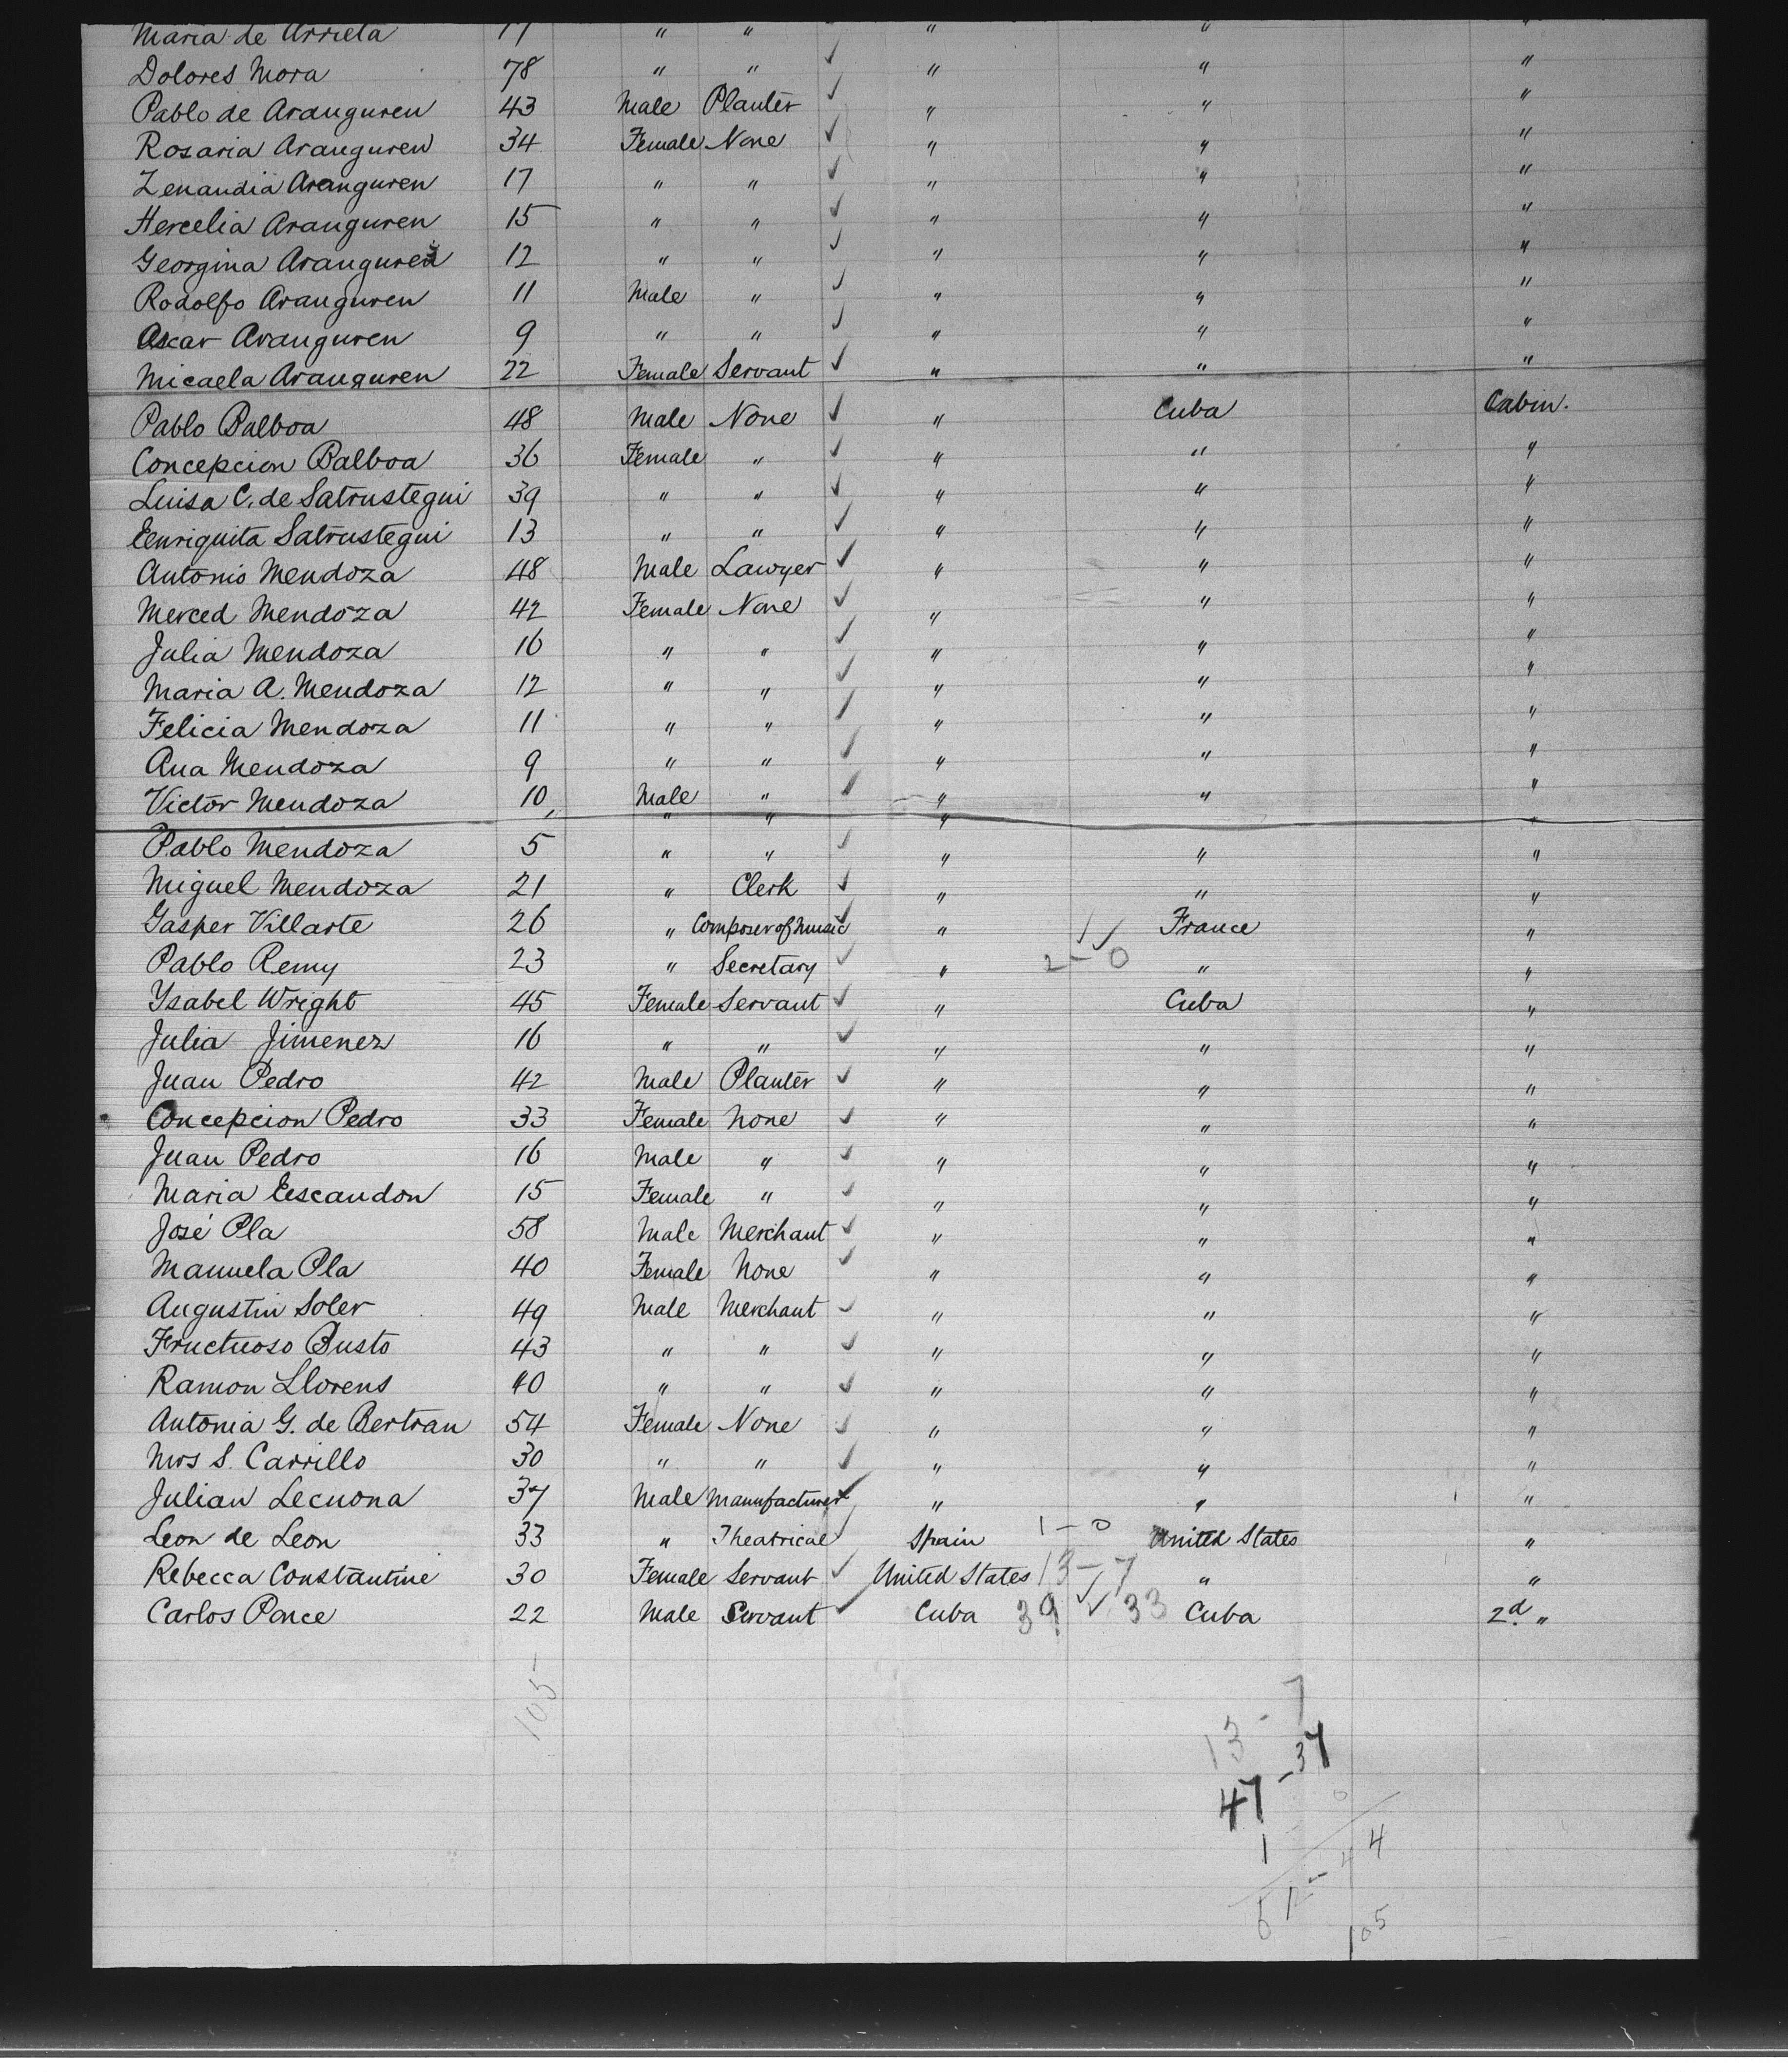 Maria de Arrieta 17 " " " " "
Dolores Mora 78 " " ✓ " " "
Pablo de Aranguren 43 Male Planter ✓ " " "
Rosaria Aranguren 34 Female None ✓ " " "
Zenandia Aranguren 17 " " ✓ " " "
Hercelia Aranguren 15 " " ✓ " " "
Georgina Aranguren 12 " " ✓ " " "
Rodolfo Aranguren 11 Male " ✓ " " "
Oscar Aranguren 9 " " ✓ " " "
Micaela Aranguren 22 Female Servant ✓ " " "
Pablo Balboa 48 Male None ✓ " Cuba Cabin.
Concepcion Balboa 36 Female " ✓ " " "
Luisa C. de Satrustegui 39 " " ✓ " " "
Eenriquita Satrustegui 13 " " ✓ " " "
Antonio Mendoza 48 Male Lawyer ✓ " " "
Merced Mendoza 42 Female None ✓ " " "
Julia Mendoza 16 " " ✓ " " "
Maria A. Mendoza 12 " " ✓ " " "
Felicia Mendoza 11 " " ✓ " " "
Ana Mendoza 9 " " ✓ " " "
Victor Mendoza 10 Male " ✓ " " "
" " " "
Pablo Mendoza 5 " " ✓ " " "
Miguel Mendoza 21 " Clerk ✓ " " "
Gasper Villarte 26 " Composer of Music ✓ " 1 ✓ France "
Pablo Remy 23 " Secretary ✓ " 2 - 0 " "
Ysabel Wright 45 Female Servant ✓ " Cuba "
Julia Jimenez 16 " " ✓ " " "
Juan Pedro 42 Male Planter ✓ " " "
Concepcion Pedro 33 Female None ✓ " " "
Juan Pedro 16 Male " ✓ " " "
Maria Eescandon 15 Female " ✓ " " "
José Pla 58 Male Merchant ✓ " " "
Manuela Pla 40 Female None ✓ " " "
Augustin Soler 49 Male Merchant ✓ " " "
Fructuoso Busto 43 " " ✓ " " "
Ramon Llorens 40 " " ✓ " " "
Antonia G. de Bertran 54 Female None ✓ " " "
Mrs S. Carrillo 30 " " ✓ " " "
Julian Lecuona 37 Male Manufacturer ✓ " " "
Leon de Leon 33 " Theatrical ✓ Spain 1 - 0 United States "
Rebecca Constantine 30 Female Servant ✓ United States 13 - 7 " "
Carlos Ponce 22 Male Servant ✓ Cuba 39 ✓ ✓ 33 Cuba 2d "
105
13 - 7
47 - 37
1 0
4
105